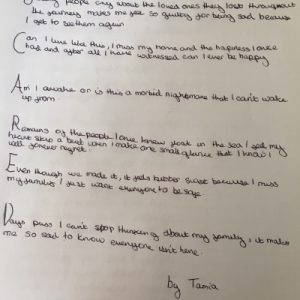 people cry about the loved ones they lost throughout
the journey makes me feel so guilty for being sad because
I get to see them again
Can I live like this, I miss my home and the happiness I once
had and after all I have witnessed can I ever be happy
Am I awake or is this a morbid nightmare that I can't wake
up from.
Remains of the people I once knew float in the sea I feel my
heart skip a beat when I make one small glance that I know I
will forever regret.
Even though we made it, it feels bitter sweet because I miss
my family I just want everyone to be safe
Days pass I can't stop thinking about my family, it makes
me so sad to know everyone isn't here.
by Tania